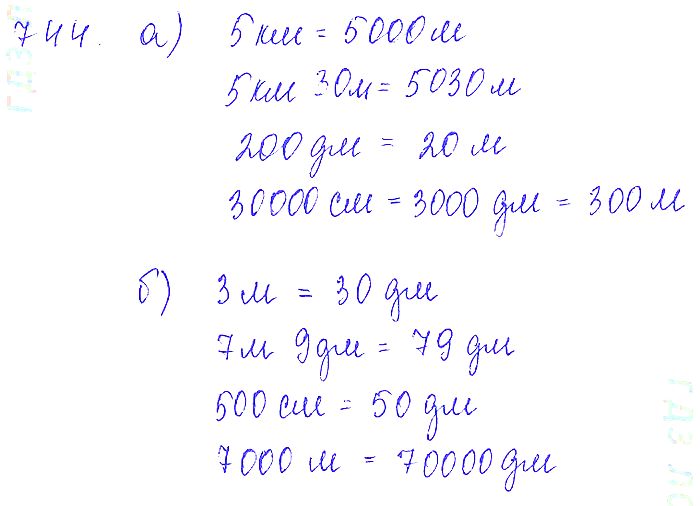 744. а) 5 км = 5000 м
5 км 30 м = 5030 м
200 дм = 20 м
30000 см = 3000 дм = 300 м
б) 3 м = 30 дм
7 м 9 дм = 79 дм
500 см = 50 дм
7000 м = 70000 дм